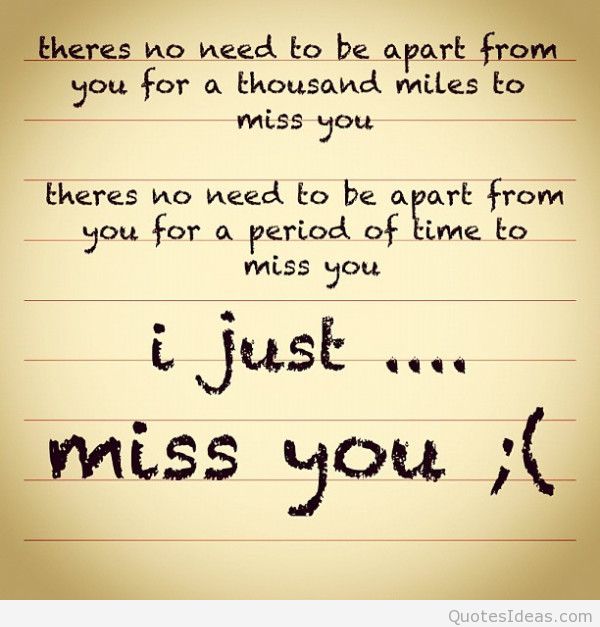 theres no need to be apart from
you for a thousand miles to
miss you
theres no need to be apart from
you for a period of time to
miss you
i just ....
miss you ;(
QuotesIdeas.com